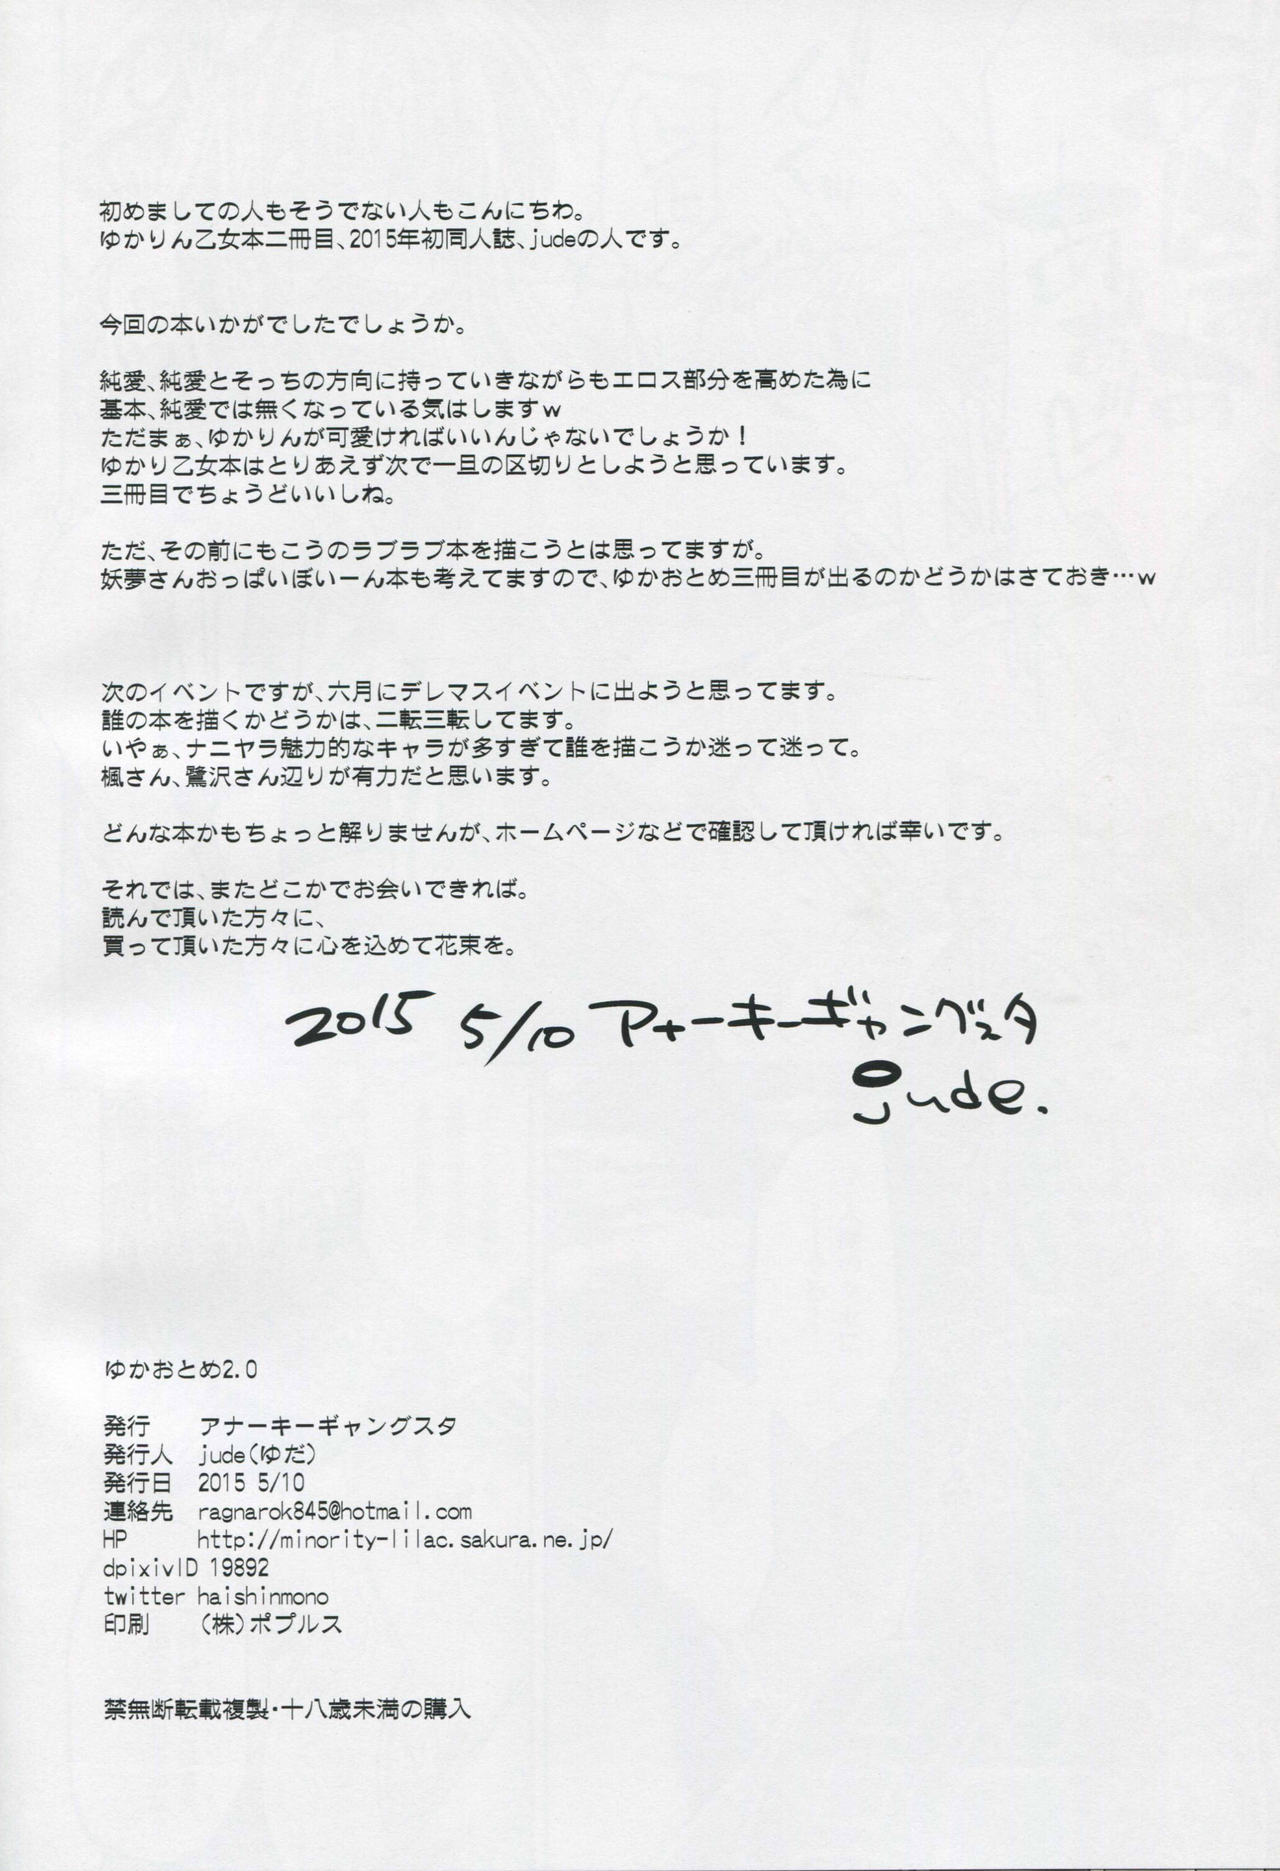 初めましての人もそうでない人もこんにちわ。
ゆかりん乙女本二冊目、2015年初同人誌、judeの人です。
今回の本いかがでしたでしょうか。
純愛、純愛とそっちの方向に持っていきながらもエロス部分を高めた為に
基本、純愛では無くなっている気はしますw
ただまぁ、ゆかりんが可愛ければいいんじゃないでしょうか！
ゆかり乙女本はとりあえず次で一旦の区切りとしようと思っています。
三冊目でちょうどいいしね。
ただ、その前にもこうのラブラブ本を描こうとは思ってますが。
妖夢さんおっぱいぼいーん本も考えてますので、ゆかおとめ三冊目が出るのかどうかはさておき…w
次のイベントですが、六月にデレマスイベントに出ようと思ってます。
誰の本を描くかどうかは、二転三転してます。
いやぁ、ナニヤラ魅力的なキャラが多すぎて誰を描こうか迷って迷って。
楓さん、鷺沢さん辺りが有力だと思います。
どんな本かもちょっと解りませんが、ホームページなどで確認して頂ければ幸いです。
それでは、またどこかでお会いできれば。
読んで頂いた方々に、
買って頂いた方々に心を込めて花束を。
2015 5/10 アナーキーギャングスタ
jude.
ゆかおとめ2.0
発行 アナーキーギャングスタ
発行人 jude(ゆだ)
発行日 2015 5/10
連絡先 ragnarok845@hotmail.com
HP http://minority-lilac.sakura.ne.jp/
dpixivID 19892
twitter haishinmono
印刷 (株)ポプルス
禁無断転載複製・十八歳未満の購入